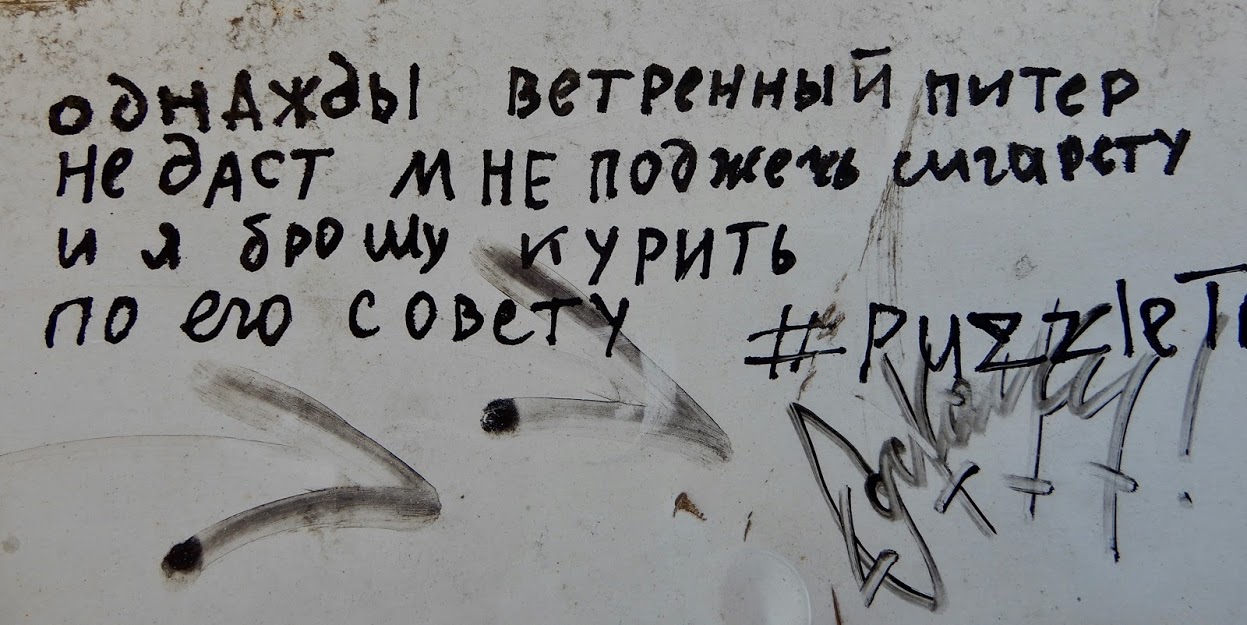 однажды ветренный питер
не даст мне поджечь сигарету
и я брошу курить
по его совету
#PuzzleT